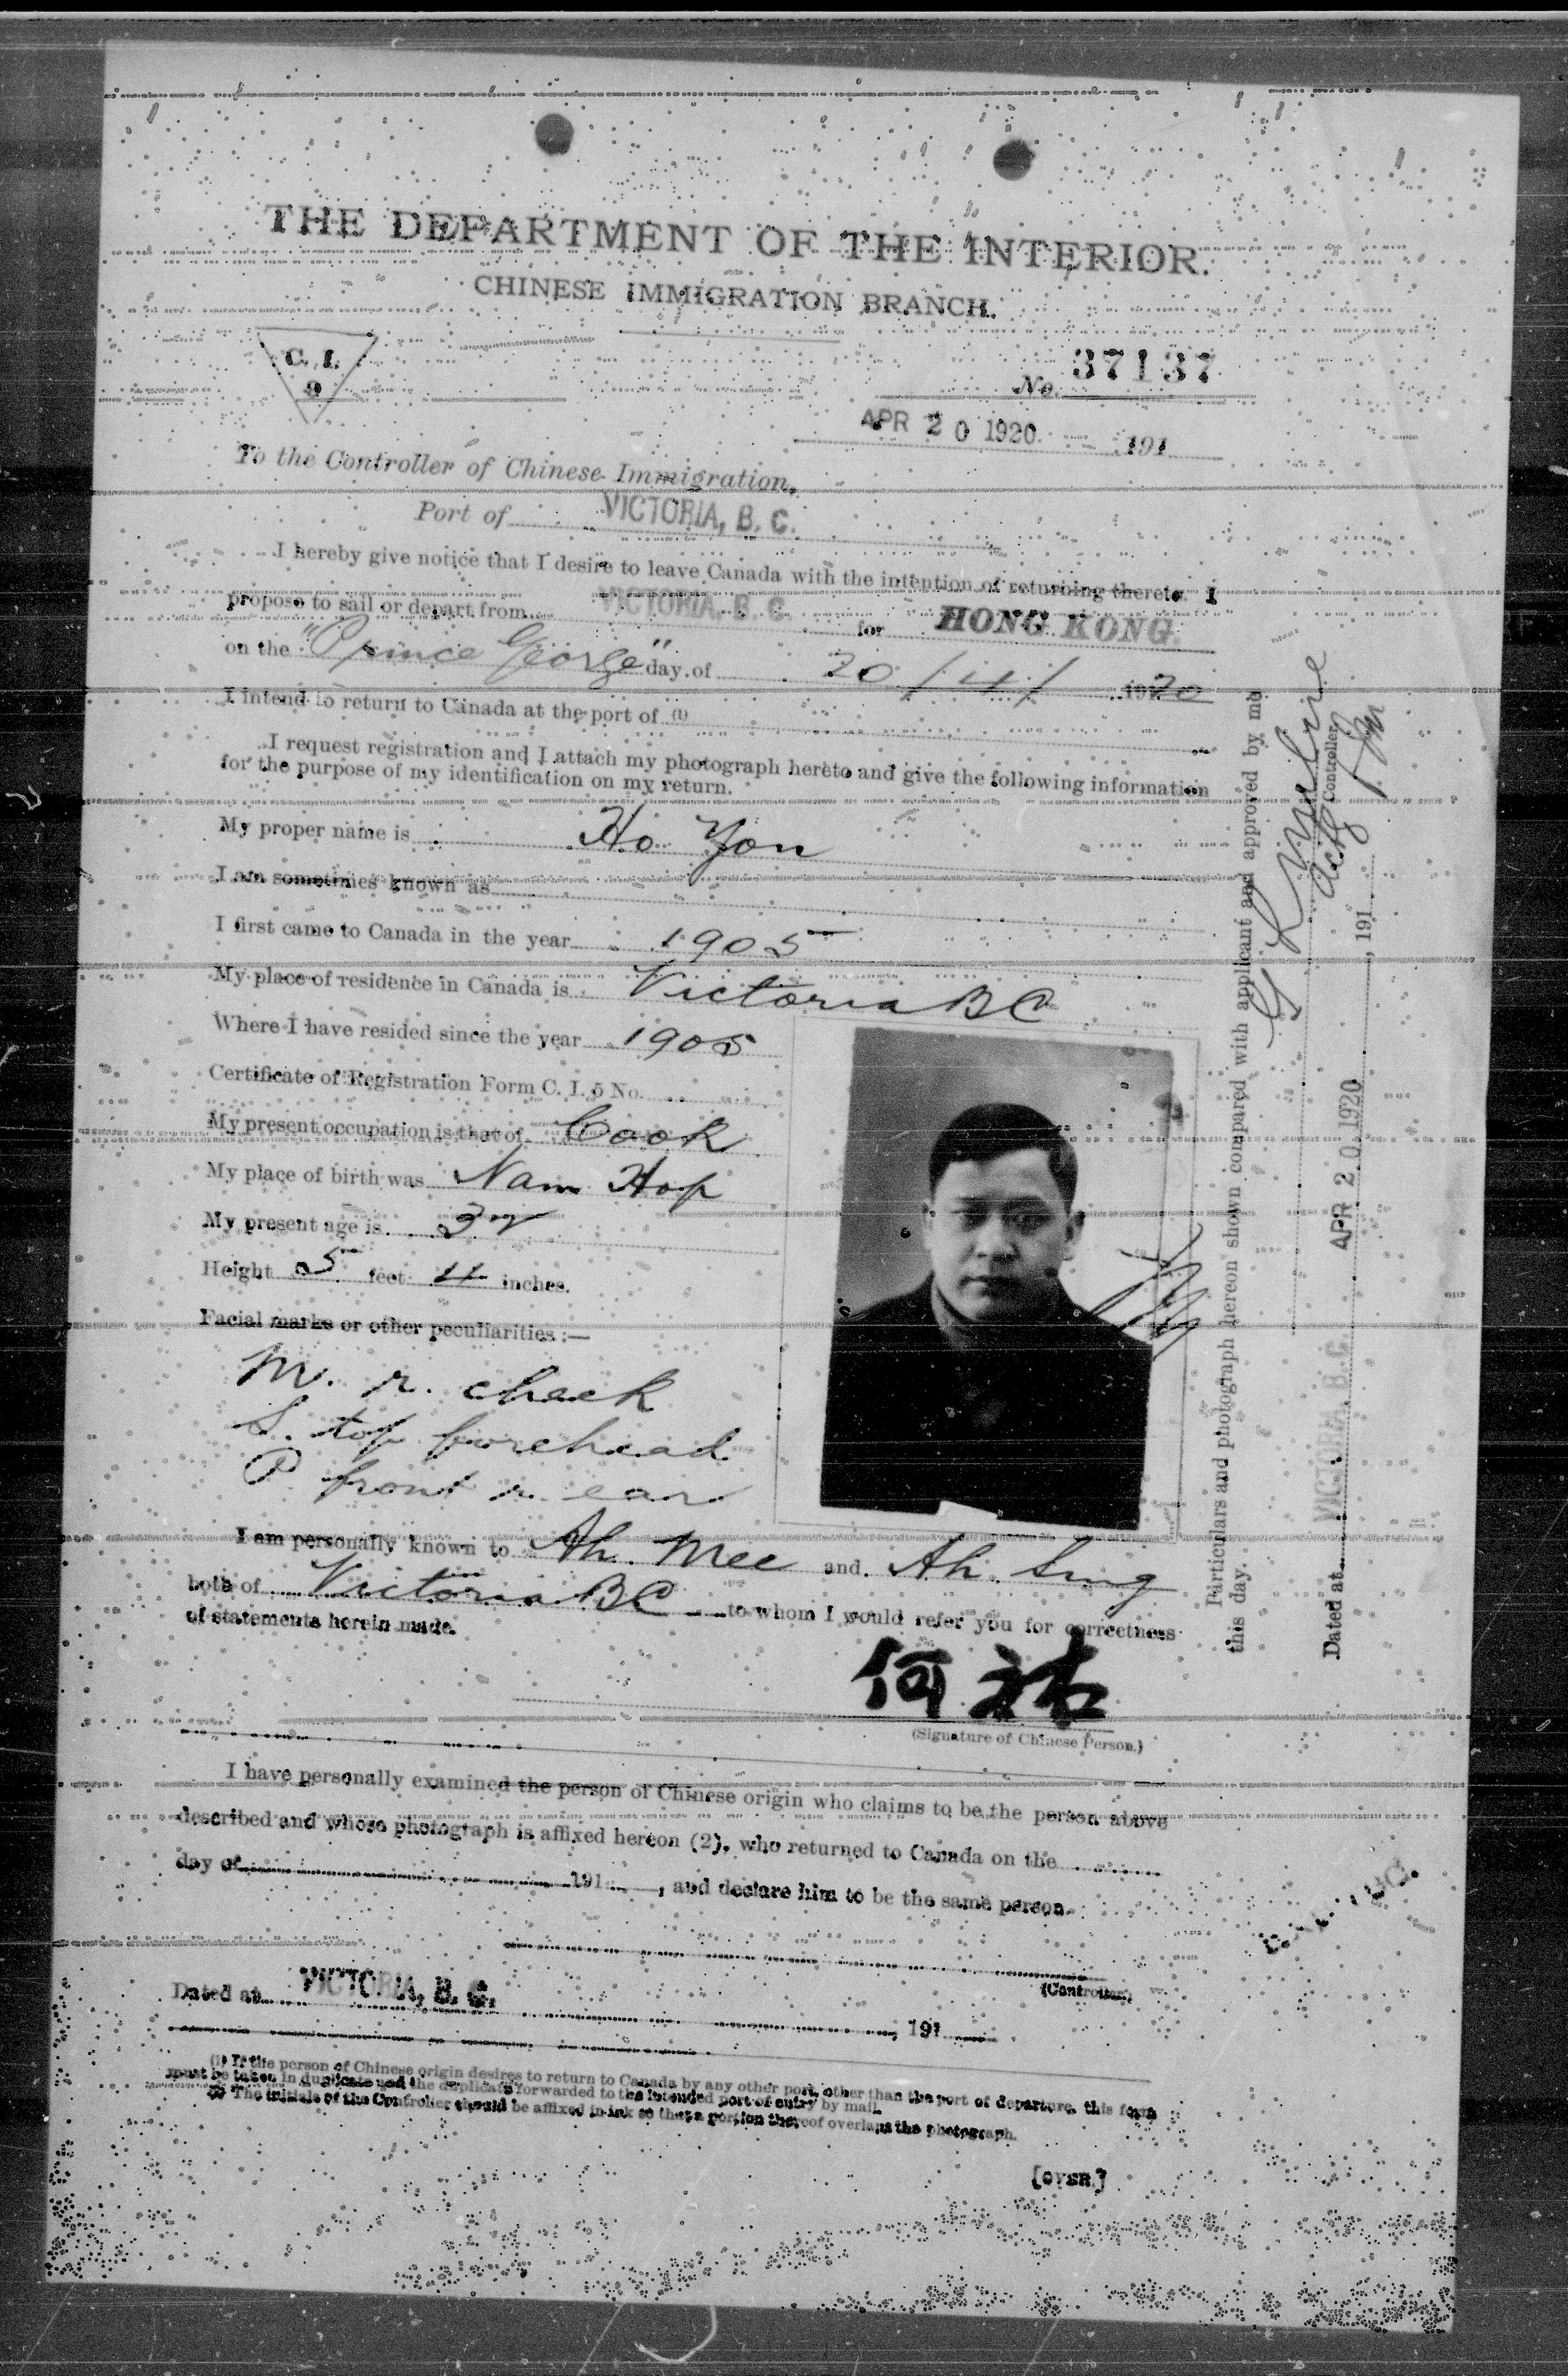 THE DEPARTMENT OF THE INTERIOR.
CHINESE IMMIGRATION BRANCH.
C. I.
9
No. 37137
APR 20 1920 191
To the Controller of Chinese Immigration,
Port of VICTORIA, B. C.
I hereby give notice that I desire to leave Canada with the intention of returning thereto. I
propose to sail or depart from VICTORIA, B. C. for HONG KONG.
on the "Prince George" day of 20/4/ 1920
I intend to return to Canada at the port of (1)
I request registration and I attach my photograph hereto and give the following information
for the purpose of my identification on my return.
My proper name is Ho Yon
I am sometimes known as
I first came to Canada in the year 1905
My place of residence in Canada is Victoria BC
Where I have resided since the year 1905
Certificate of Registration Form C. I. 5 No.
My present occupation is that of Cook
My place of birth was Nam Hop
My present age is
Height 5 feet 4 inches.
Facial marks or other peculiarities:—
M. r. cheek
S. top forehead
P. front r. ear
I am personally known to Ah Mee and Ah Sing
both of Victoria BC to whom I would refer you for correctness
of statements herein made.
何祐
(Signature of Chinese Person.)
I have personally examined the person of Chinese origin who claims to be the person above
described and whose photograph is affixed hereon (2), who returned to Canada on the
day of 191 , and declare him to be the same person.
(Controller)
Dated at VICTORIA, B. C. , 191
(1) If the person of Chinese origin desires to return to Canada by any other port, other than the port of departure, this form
must be taken in duplicate and the duplicate forwarded to the intended port of entry by mail.
(2) The initials of the Controller should be affixed in ink so that a portion thereof overlaps the photograph.
[OVER.]
Particulars and photograph hereon shown compared with applicant and approved by me
this day.
Actg Controller
Dated at VICTORIA, B. C. APR 20 1920 , 191